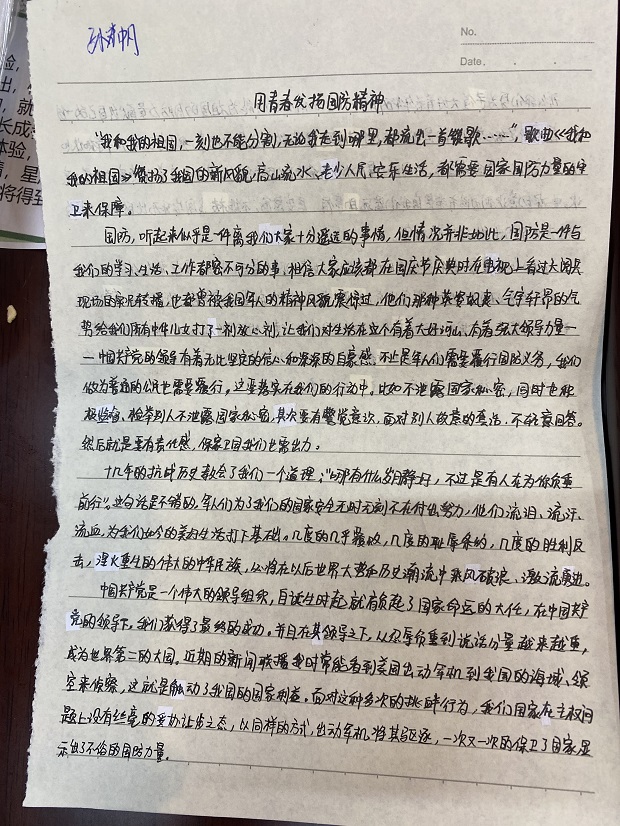 No.
Date.
用青春优扬国防精神
"我和我的祖国，一刻也不能分割，无论我走到哪里，都流出一首赞歌……"，歌曲《我和
我的祖国》赞扬了我国的新风貌，高山流水、老少人民，安乐生活，都需要国家国防力量的守
卫来保障。
国防，听起来似乎是一件离我们大家十分遥远的事情，但情况并非如此，国防是一件与
我们的学习、生活、工作都密不可分的事，相信大家应该都在国庆节庆典时在电视上看过大阅兵
现场的实况转播，也都曾被我国军人的精神风貌震惊过，他们那种英姿飒爽、气宇轩昂的气
势给我们所有中华儿女打了一剂放心剂，让我们对生活在这个有着大好河山、有着强大领导力量—
—中国共产党的领导有着无比坚定的信心和深深的自豪感。不止是军人们需要履行国防义务，我们
做为普通的公民也需要履行。这要落实在我们的行动中。比如不泄露国家秘密，同时也积
极监督、检举别人不泄露国家秘密，其次要有警觉意识，面对别人故意的套话，不轻意回答。
然后就是要有责任感，保家卫国我们也需出力。
十几年的抗战历史教会了我们一个道理："哪有什么岁月静好，不过是有人在为你负重
前行"。这句话是不错的，军人们为了我们的国家安全无时无刻不在付出努力，他们流泪、流汗、
流血，为我们如今的美好生活打下基础。几度的几乎覆败，几度的耻辱条约，几度的胜利反
击，浸火重生的伟大的中华民族，必将在以后世界大势和历史潮流中乘风破浪、激流勇进。
中国共产党是一个伟大的领导组织，自诞生时起就有负起了国家命运的大任，在中国共产
党的领导下，我们获得了最终的成功。并且在其领导之下，从忍辱负重到说话分量越来越重，
成为世界第二的大国。近期的新闻联播我时常能看到美国出动军机到我国的海域、领
空来侦察，这就是触动了我国的国家利益。面对这种多次的挑衅行为，我们国家在主权问
题上没有丝毫的妥协让步之态，以同样的方式，出动军机将其驱逐，一次又一次的保卫了国家，显
示出了不俗的国防力量。